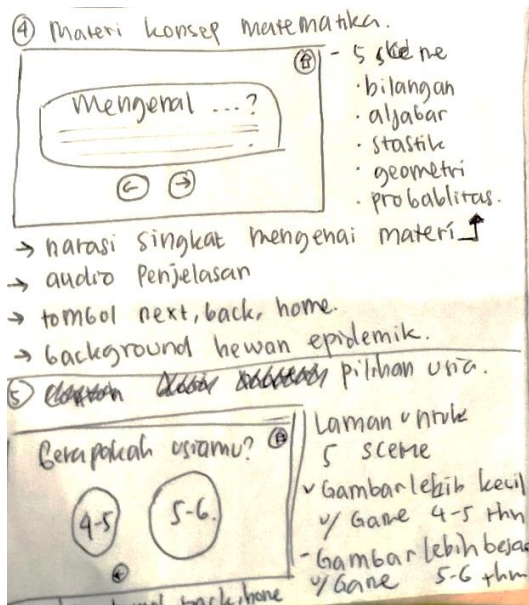 ④ Materi konsep matematika.
Mengenal ...?
- 5 skene
· bilangan
· aljabar
· stastik
· geometri
· probablitas.
→ narasi singkat mengenai materi
→ audio penjelasan
→ tombol next, back, home.
→ background hewan epidemik.
⑤ pilihan usia.
Berapakah usiamu?
4-5
5-6
Laman untuk
5 scene
Gambar lebih kecil
u/ Game 4-5 thn
- Gambar lebih besar
u/ Game 5-6 thn
back, home